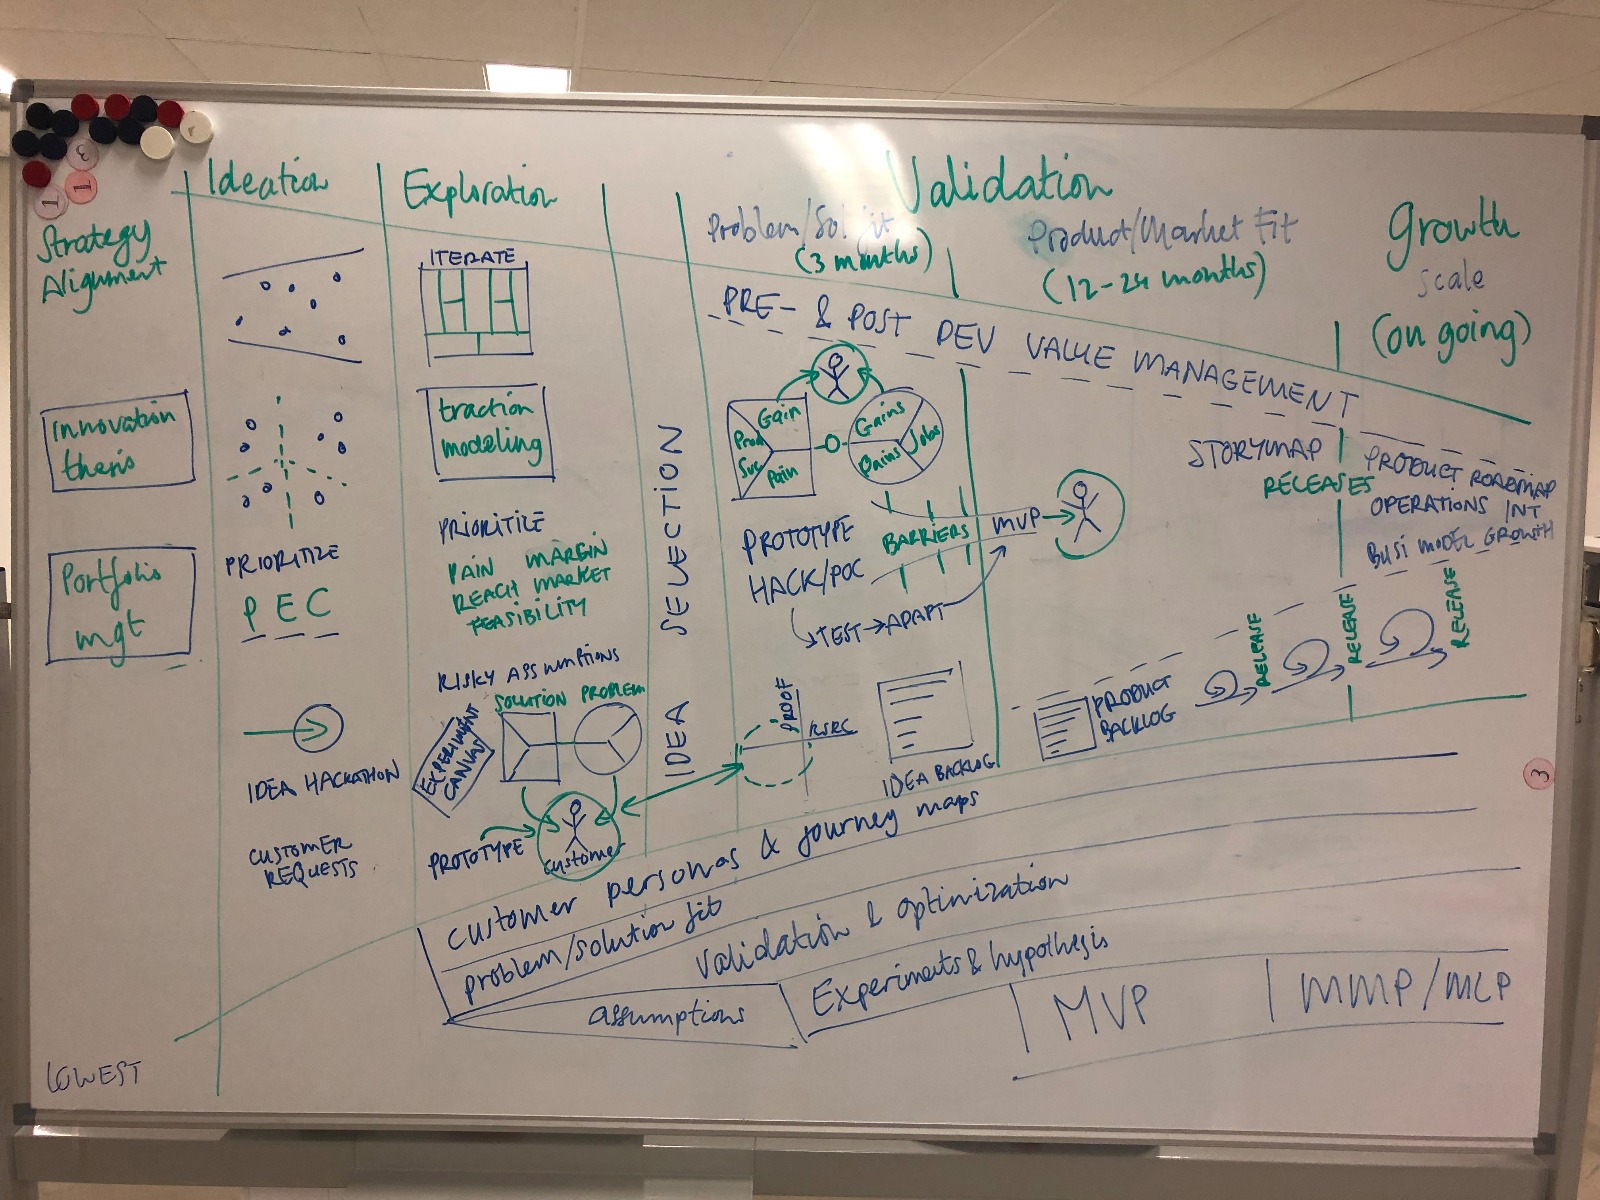 Strategy
Alignment
Innovation
thesis
Portfolio
mgt
LOWEST
Ideation
PRIORITIZE
P E C
IDEA HACKATHON
CUSTOMER
REQUESTS
Exploration
ITERATE
traction
modeling
PRIORITIZE
PAIN MARGIN
REACH MARKET
FEASIBILITY
RISKY ASSUMPTIONS
SOLUTION PROBLEM
EXPERIMENT
CANVAS
PROTOTYPE
Customer
IDEA SELECTION
Validation
Problem/Sol fit
(3 months)
Product/Market Fit
(12-24 months)
PRE- & POST DEV VALUE MANAGEMENT
Gain
Prod
Svc
Pain
Gains
Jobs
Pains
PROTOTYPE
HACK/POC
BARRIERS
MVP
TEST → ADAPT
PROOF
RSRC
IDEA BACKLOG
STORYMAP
RELEASES
PRODUCT
BACKLOG
RELEASE
RELEASE
RELEASE
Growth
Scale
(on going)
PRODUCT ROADMAP
OPERATIONS INT
BUSI MODEL GROWTH
customer personas & journey maps
problem/solution fit
Validation & optimization
assumptions
Experiments & hypothesis
MVP
MMP/MLP
3
1
1
3